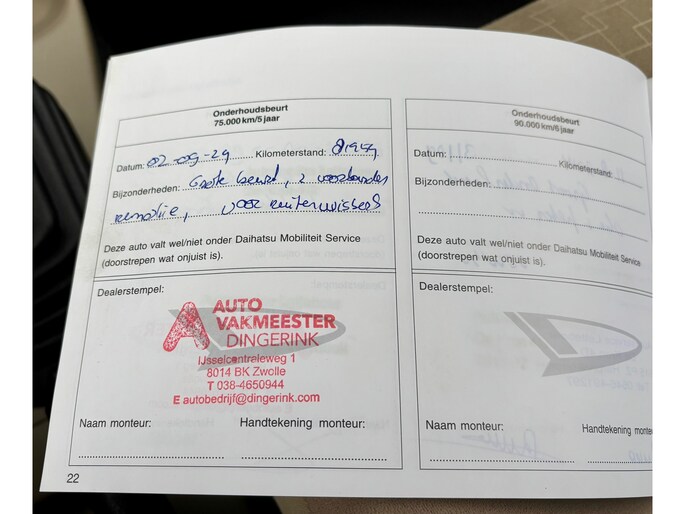 Onderhoudsbeurt
75.000 km/5 jaar
Datum: 02-09-29 Kilometerstand: 81959
Bijzonderheden: Grote beurt, 2 voorbanden
remolie, voor ruitenwissers
Deze auto valt wel/niet onder Daihatsu Mobiliteit Service
(doorstrepen wat onjuist is).
Dealerstempel:
AUTO
VAKMEESTER
DINGERINK
IJsselcentraleweg 1
8014 BK Zwolle
T 038-4650944
E autobedrijf@dingerink.com
Naam monteur: Handtekening monteur:
22
Onderhoudsbeurt
90.000 km/6 jaar
Datum: Kilometerstand:
Bijzonderheden:
Deze auto valt wel/niet onder Daihatsu Mobiliteit Service
(doorstrepen wat onjuist is).
Dealerstempel:
Naam monteur: Handtekening monteur: